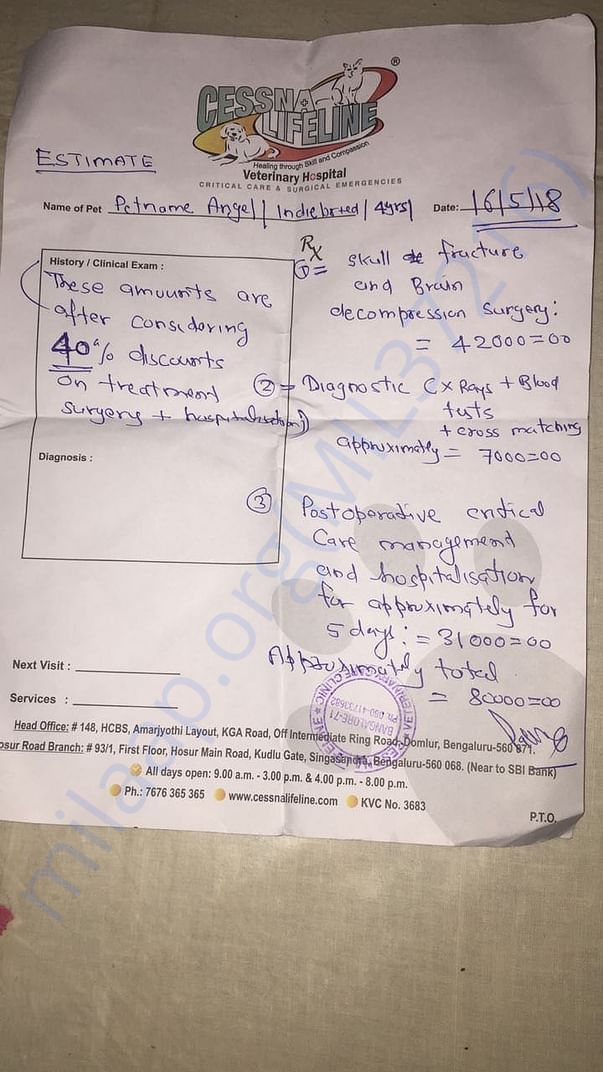 CESSNA
LIFELINE
®
Healing through Skill and Compassion
Veterinary Hospital
CRITICAL CARE & SURGICAL EMERGENCIES
ESTIMATE
Name of Pet Petname Angel | Indiebreed | 4yrs | Date: 16/5/18
History / Clinical Exam :
These amounts are
after considering
40% discounts
on treatment
surgery + hospitalisation)
Diagnosis :
Rx
① = skull fracture
and Brain
decompression surgery:
= 42000=00
② = Diagnostic C x Rays + Blood
tests
+ cross matching
approximately = 7000=00
③ Postoperative critical
Care management
and hospitalisation
for approximately for
5 days: = 31000=00
Approximately total
= 80000=00
Next Visit :
Services :
VETERINARY CLINIC
BANGALORE-71
Head Office: # 148, HCBS, Amarjyothi Layout, KGA Road, Off Intermediate Ring Road, Domlur, Bengaluru-560 071.
osur Road Branch: # 93/1, First Floor, Hosur Main Road, Kudlu Gate, Singasandra, Bengaluru-560 068. (Near to SBI Bank)
All days open: 9.00 a.m. - 3.00 p.m. & 4.00 p.m. - 8.00 p.m.
Ph.: 7676 365 365 www.cessnalifeline.com KVC No. 3683
P.T.O.